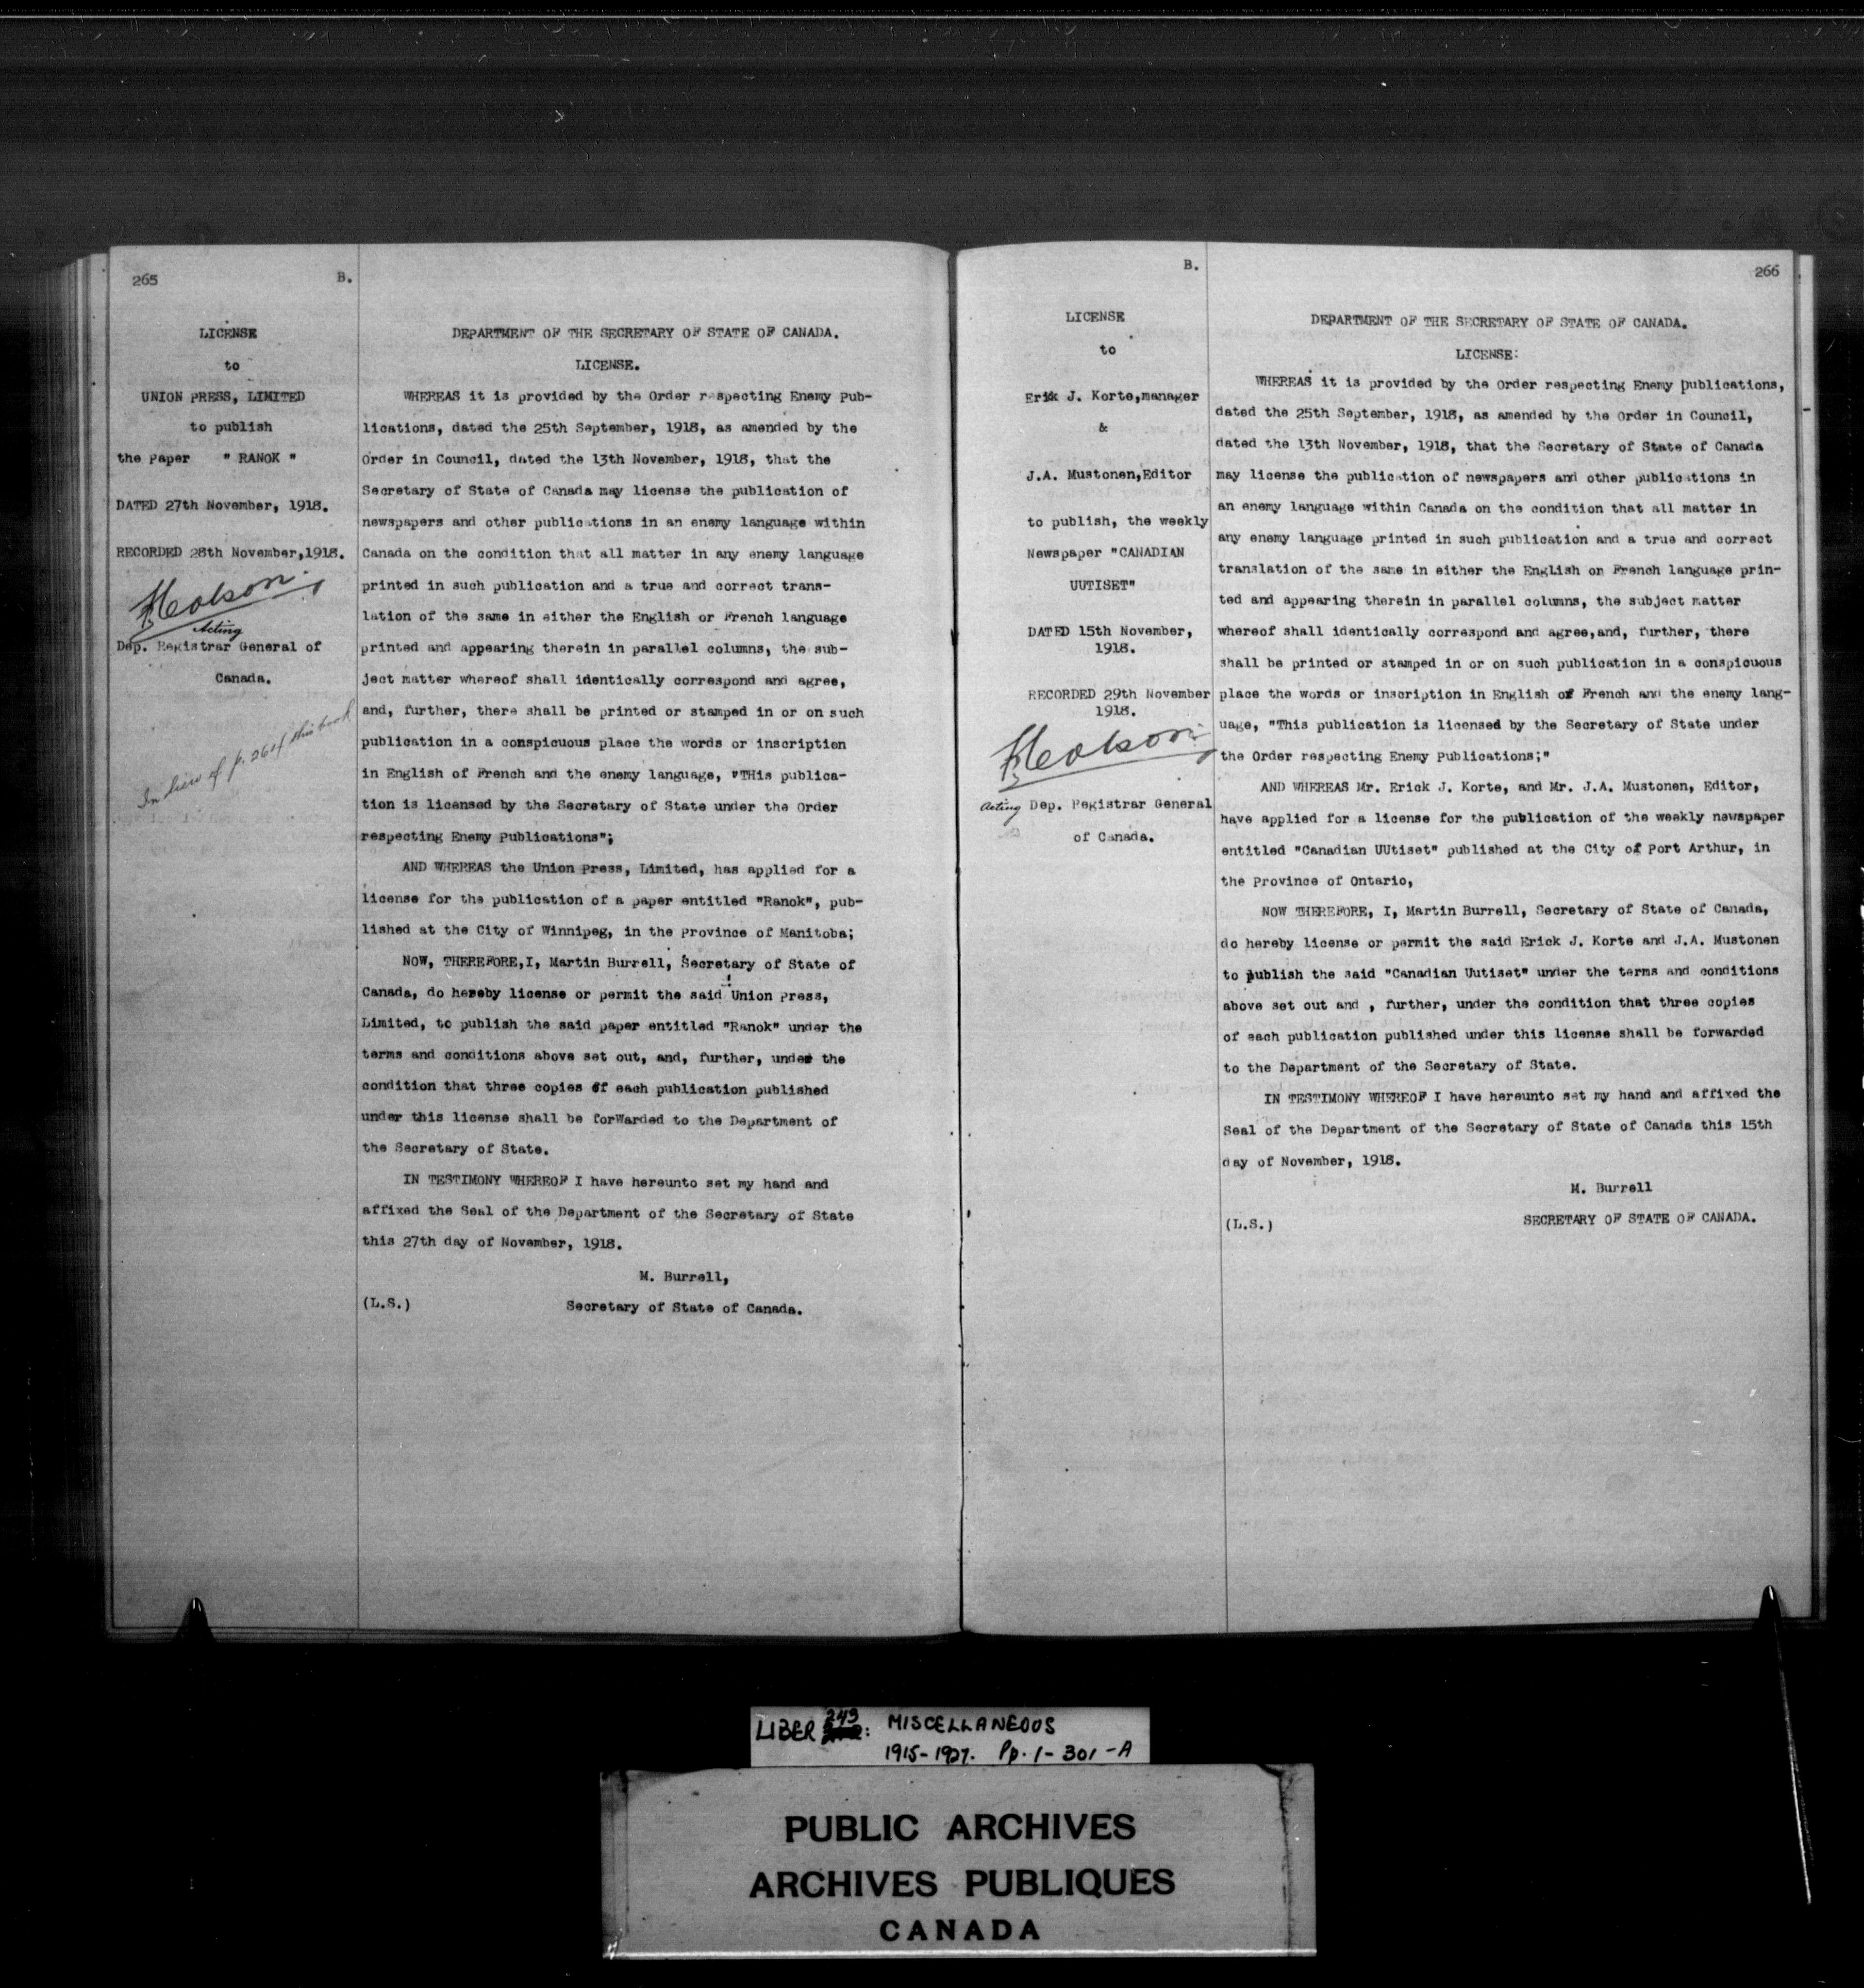 265
B.
LICENSE
to
UNION PRESS, LIMITED
to publish
the Paper " RANOK "
DATED 27th November, 1918.
RECORDED 28th November,1918.
Acting
Dep. Registrar General of
Canada.
In lieu of p. 264 this book
DEPARTMENT OF THE SECRETARY OF STATE OF CANADA.
LICENSE.
WHEREAS it is provided by the Order respecting Enemy Pub-
lications, dated the 25th September, 1918, as amended by the
Order in Council, dated the 13th November, 1918, that the
Secretary of State of Canada may license the publication of
newspapers and other publications in an enemy language within
Canada on the condition that all matter in any enemy language
printed in such publication and a true and correct trans-
lation of the same in either the English or French language
printed and appearing therein in parallel columns, the sub-
ject matter whereof shall identically correspond and agree,
and, further, there shall be printed or stamped in or on such
publication in a conspicuous place the words or inscription
in English of French and the enemy language, "THis publica-
tion is licensed by the Secretary of State under the Order
respecting Enemy Publications";
AND WHEREAS the Union Press, Limited, has applied for a
license for the publication of a paper entitled "Ranok", pub-
lished at the City of Winnipeg, in the Province of Manitoba;
NOW, THEREFORE,I, Martin Burrell, Secretary of State of
Canada, do hereby license or permit the said Union Press,
Limited, to publish the said paper entitled "Ranok" under the
terms and conditions above set out, and, further, under the
condition that three copies of each publication published
under this license shall be forWarded to the Department of
the Secretary of State.
IN TESTIMONY WHEREOF I have hereunto set my hand and
affixed the Seal of the Department of the Secretary of State
this 27th day of November, 1918.
M. Burrell,
(L.S.) Secretary of State of Canada.
B.
266
LICENSE
to
Erik J. Korte,manager
&
J.A. Mustonen,Editor
to publish, the weekly
Newspaper "CANADIAN
UUTISET"
DATED 15th November,
1918.
RECORDED 29th November
1918.
Acting Dep. Registrar General
of Canada.
DEPARTMENT OF THE SECRETARY OF STATE OF CANADA.
LICENSE:
WHEREAS it is provided by the Order respecting Enemy publications,
dated the 25th September, 1918, as amended by the Order in Council,
dated the 13th November, 1918, that the Secretary of State of Canada
may license the publication of newspapers and other publications in
an enemy language within Canada on the condition that all matter in
any enemy language printed in such publication and a true and correct
translation of the same in either the English or French language prin-
ted and appearing therein in parallel columns, the subject matter
whereof shall identically correspond and agree,and, further, there
shall be printed or stamped in or on such publication in a conspicuous
place the words or inscription in English of French and the enemy lang-
uage, "This publication is licensed by the Secretary of State under
the Order respecting Enemy Publications;"
AND WHEREAS Mr. Erick J. Korte, and Mr. J.A. Mustonen, Editor,
have applied for a license for the publication of the weekly newspaper
entitled "Canadian UUtiset" published at the City of Port Arthur, in
the Province of Ontario,
NOW THEREFORE, I, Martin Burrell, Secretary of State of Canada,
do hereby license or permit the said Erick J. Korte and J.A. Mustonen
to publish the said "Canadian Uutiset" under the terms and conditions
above set out and , further, under the condition that three copies
of each publication published under this license shall be forwarded
to the Department of the Secretary of State.
IN TESTIMONY WHEREOF I have hereunto set my hand and affixed the
Seal of the Department of the Secretary of State of Canada this 15th
day of November, 1918.
M. Burrell
(L.S.) SECRETARY OF STATE OF CANADA.
LIBER 243: MISCELLANEOUS
1915-1927. Pp. 1-301-A
PUBLIC ARCHIVES
ARCHIVES PUBLIQUES
CANADA